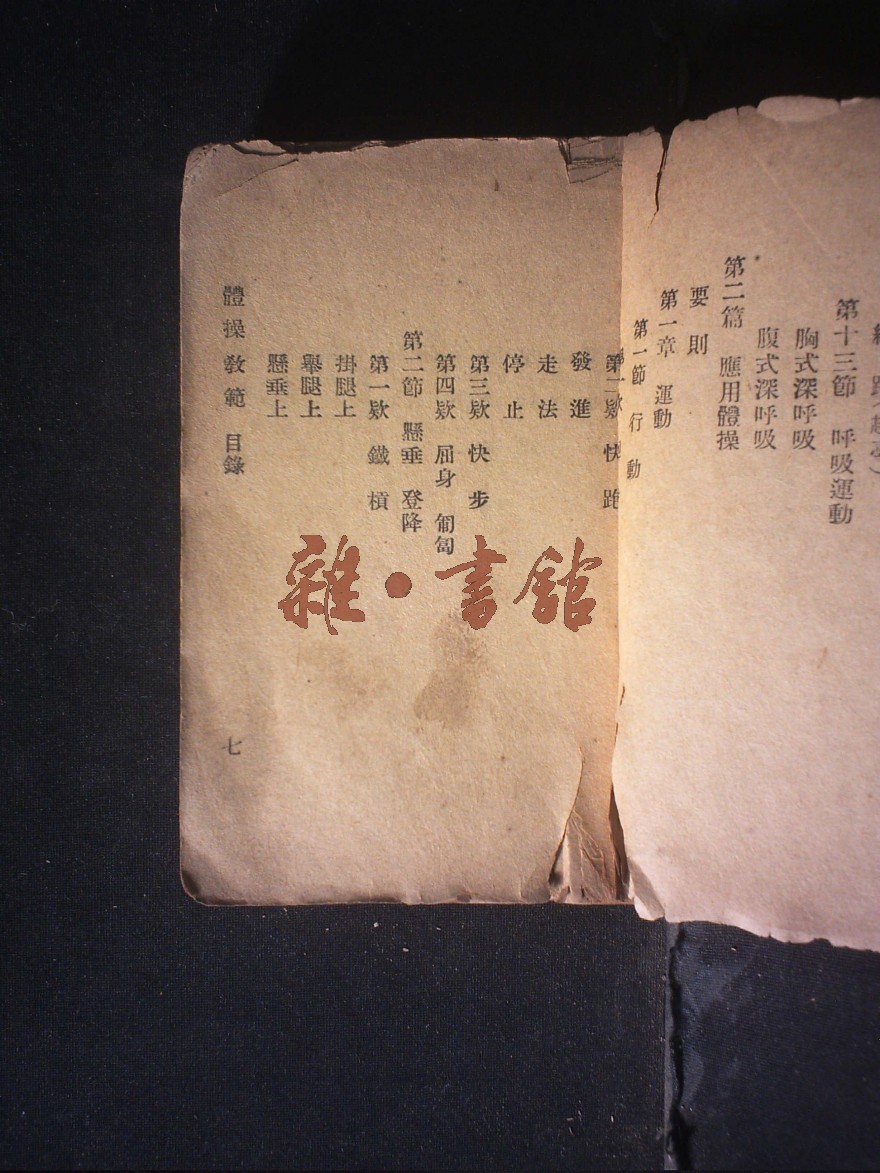 第十三節 呼吸運動
胸式深呼吸
腹式深呼吸
第二篇 應用體操
要則
第一章 運動
第一節 行動
第二欵 快跑
發進
走法
停止
第三欵 快步
第四欵 屈身 匍匐
第二節 懸垂 登降
第一欵 鐵槓
掛腿上
舉腿上
懸垂上
體操教範 目錄
七
雜·書館